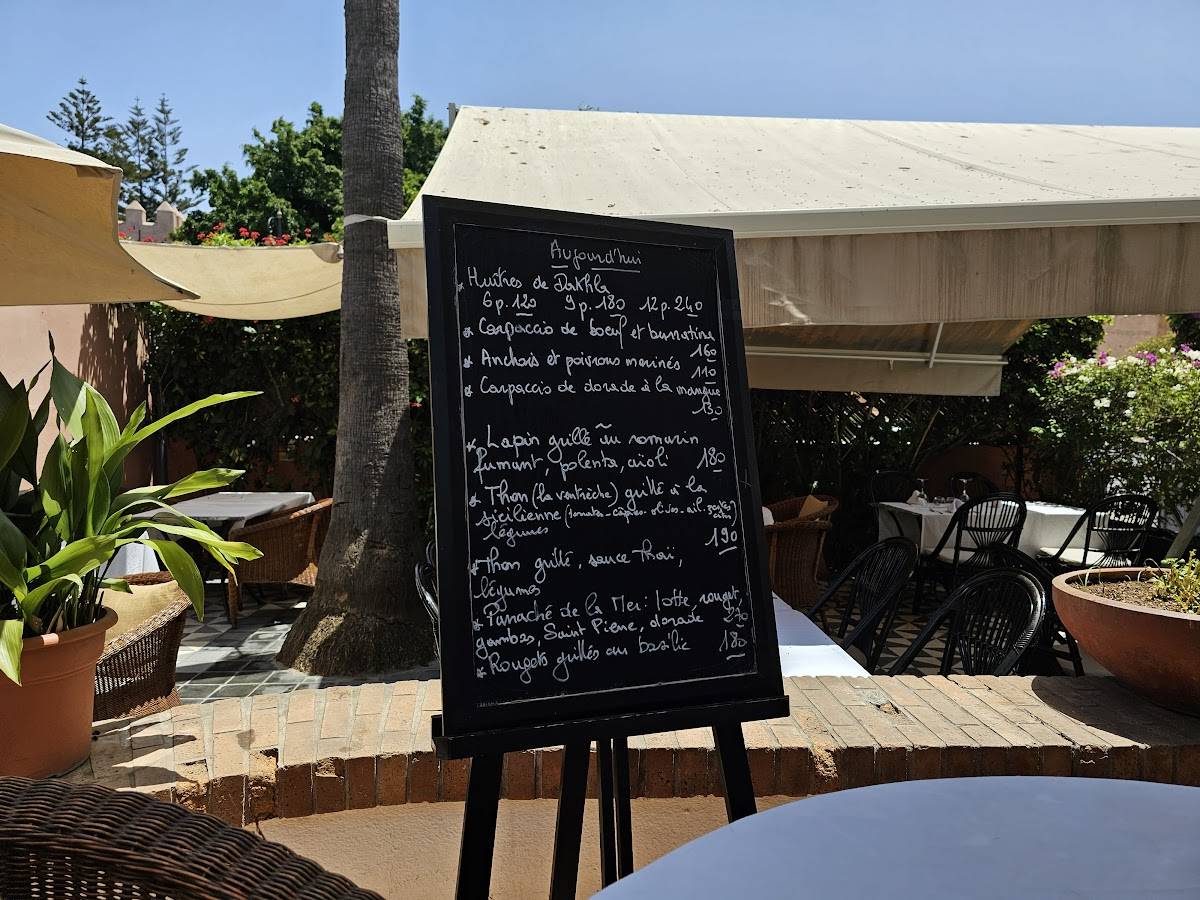 Aujourd'hui
* Huîtres de Dakhla
6p. 120 9p. 180 12p. 240
* Carpaccio de boeuf et burratina
160
* Anchois et poivrons marinés
110
* Carpaccio de dorade à la mangue
130
* Lapin grillé au romarin
fumant, polenta, aïoli 180
* Thon (la ventrèche) grillé à la
sicilienne (tomates - câpres - olives - ail -
légumes 190
* Thon grillé, sauce Thaï,
légumes
* Panaché de la Mer : lotte rouget,
gambas, Saint Pierre, dorade 270
* Rougets grillés au basilic 180